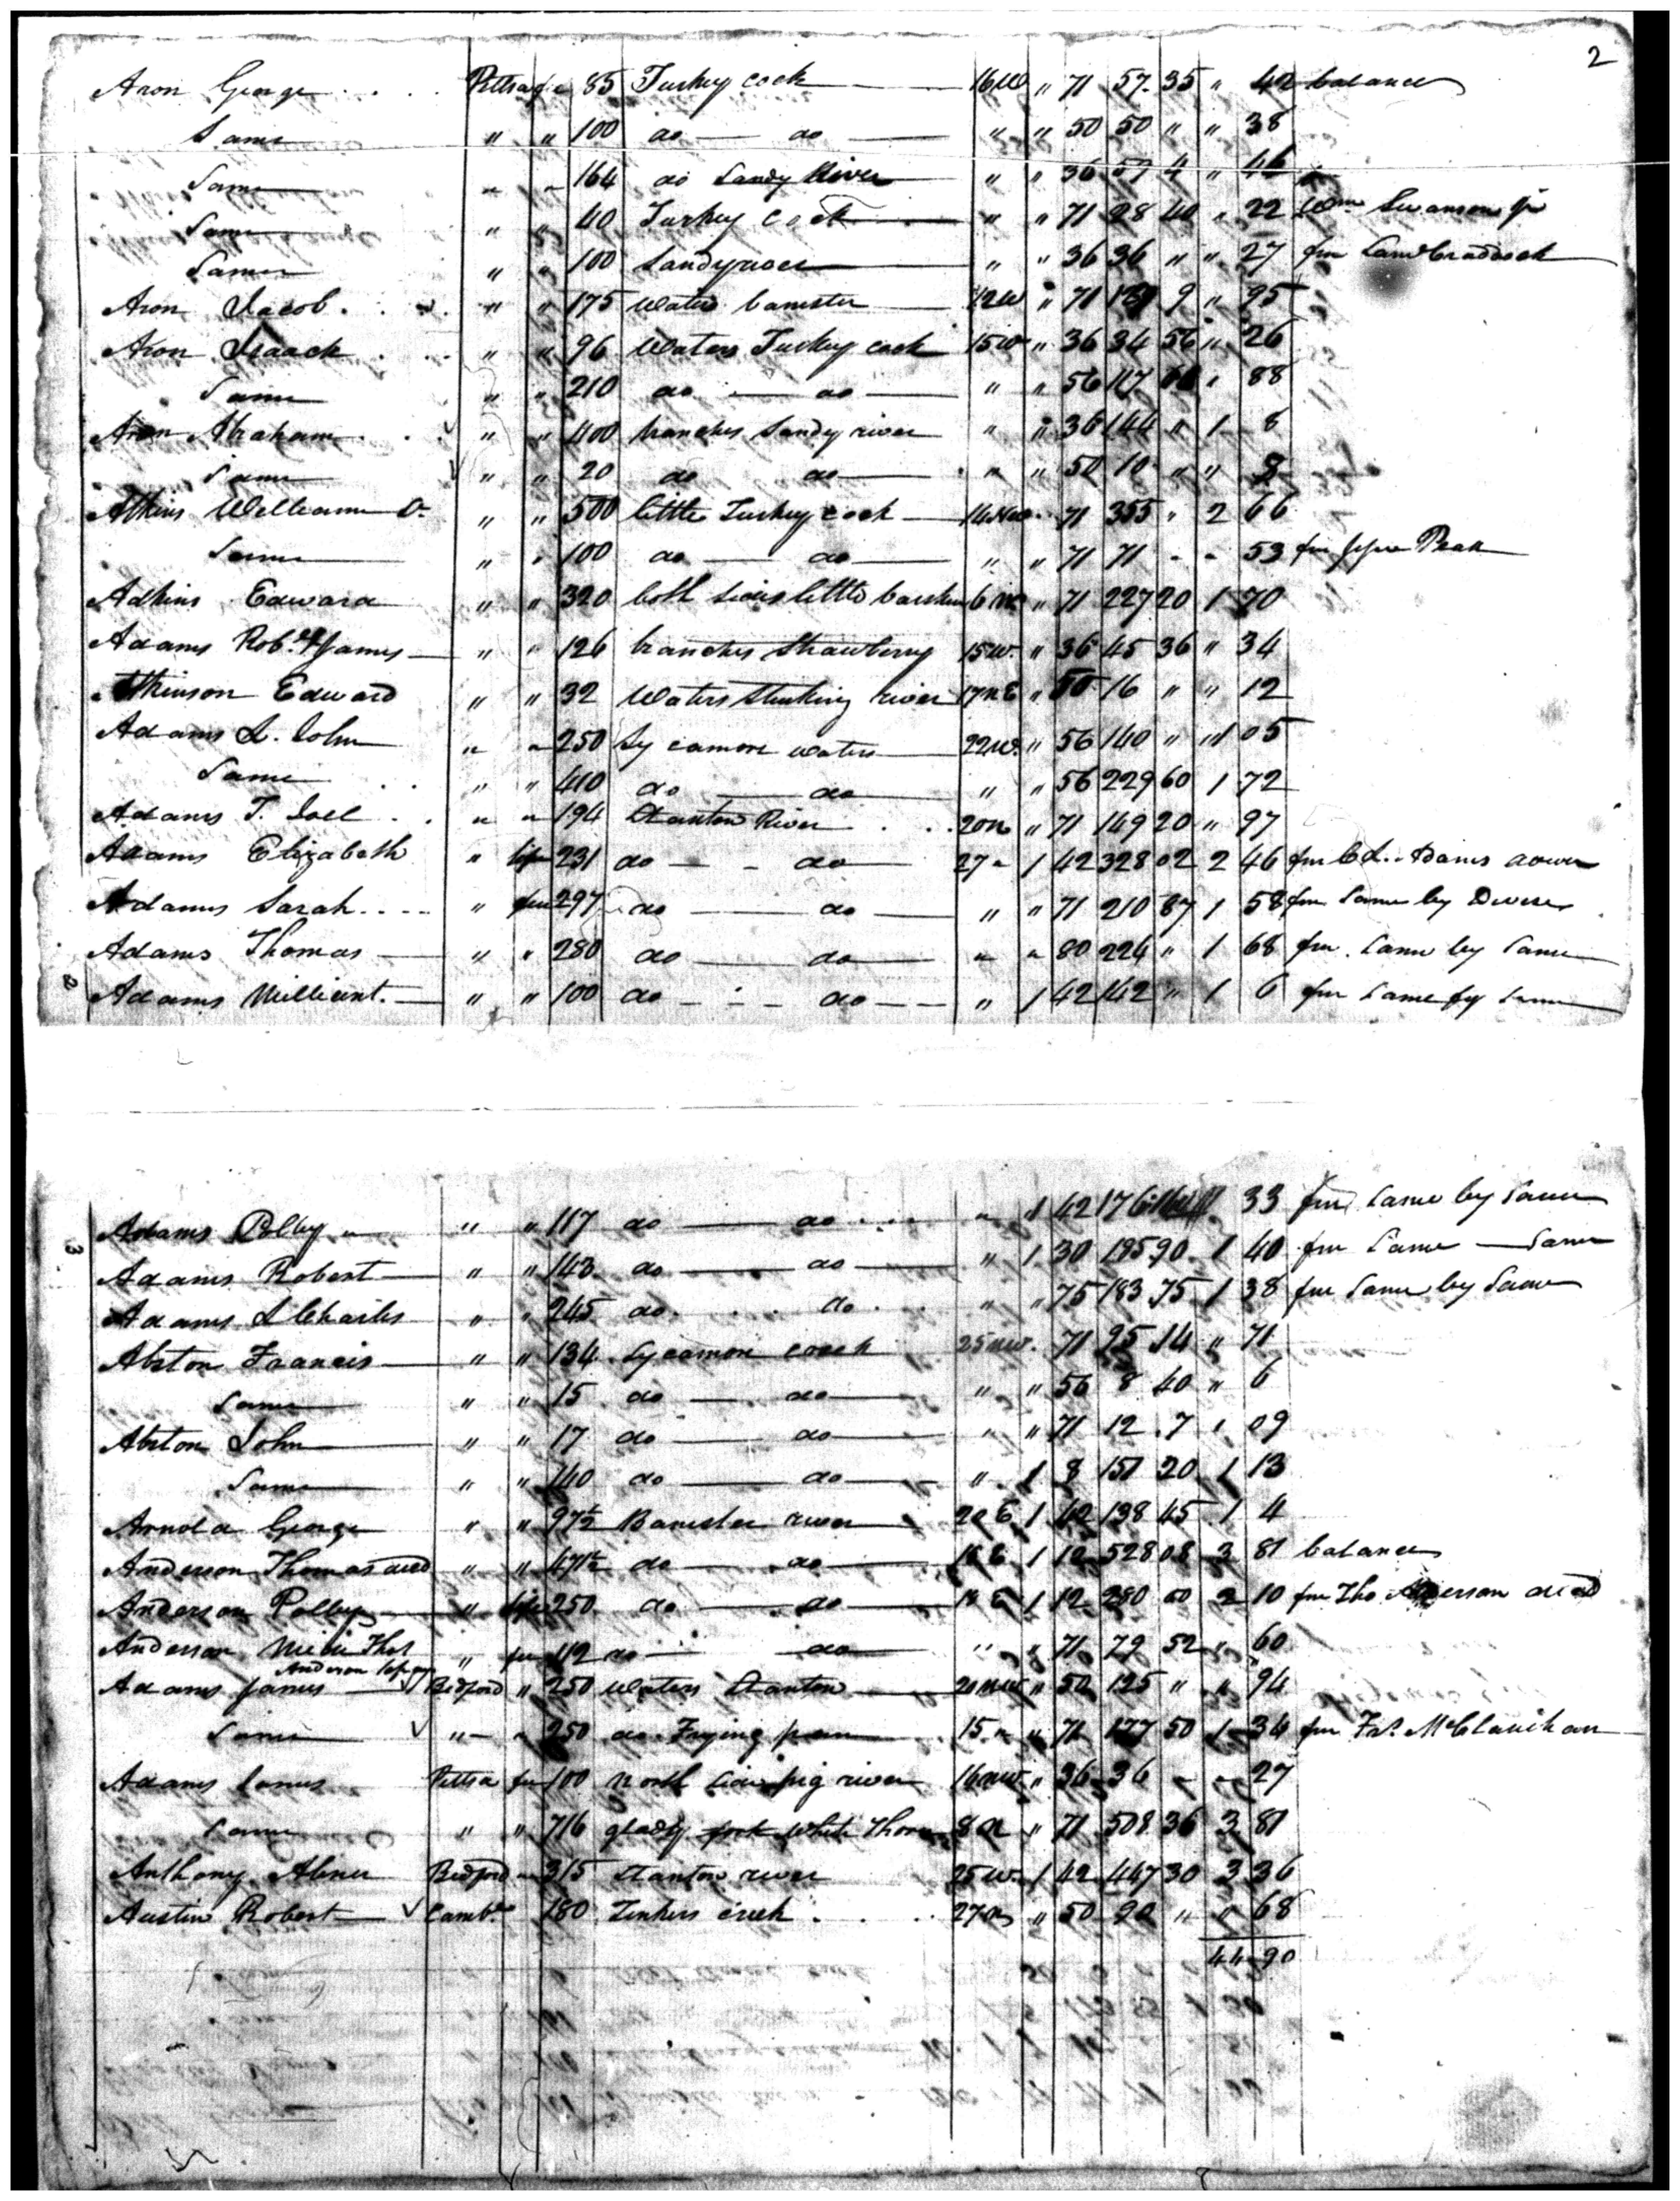 2
Aron George . . . . Pittsa fee 85 Turkey cock 16 W " 71 57. 35 " 42 balance
Same " " 100 do do " " 50 50 " " 38
Same " " 164 do Sandy River " " 36 59 4 " 46
Same " " 40 Turkey Cock " " 71 28 40 " 22 Wm Swanson Jr
Same " " 100 Sandy river " " 36 36 " " 27 fm Saml Craddock
Aron Jacob . . . " " 175 Waters banister 12 W " 71 9 " 95
Aron Isaack . . . " " 96 Waters Turkey cock 15 W " 36 34 56 " 26
Same " " 210 do do " " 56 117 60 " 88
Aron Abraham . . " " 400 branches Sandy river " " 36 144 " 1 8
Same " " 20 do do " " 50 10 " " 8
Atkins William D. " " 500 little Turkey cock 14 NW " 71 355 " 2 66
Same " " 100 do do " " 71 71 - - 53 fm Jesse Peak
Adkins Edward " " 320 both sides little 6 W " 71 227 20 1 70
Adams Robt. & James " " 126 branches Strawberry 15 W. " 36 45 36 " 34
Atkinson Edward " " 32 Waters Stinking river 17 n E " 50 16 " " 12
Adams L. John " " 250 Sycamore waters 22 W. " 56 140 " 1 05
Same " " 410 do do " " 56 229 60 1 72
Adams T. Joel . . " " 194 Stanton River . . . 20 n " 71 149 20 " 97
Adams Elizabeth " life 231 do - - do 27 " 1 42 328 02 2 46 fm Adams dower
Adams Sarah . . . . " fee 297 do do " " 71 210 87 1 58 fm Same by Devise
Adams Thomas " " 280 do do " " 80 224 " 1 68 fm Same by Same
Adams Millicent. " " 100 do - - - do - - " 1 42 142 " 1 6 fm Same by Same
2
3
Adams Polley " " 117 do do . . . " 1 42 176 33 fm Same by Same
Adams Robert " " 143 do do " 1 30 185 90 1 40 fm Same Same
Adams L Charles " " 245 do . . . do . . " " 75 183 75 1 38 fm Same by Same
Abston Francis " " 134 Sycamore creek 25 NW. 71 95 14 " 71
Same " " 15 do do " " 56 8 40 " 6
Abston John " " 17 do do " " 71 12 . 7 " 09
Same " " 140 do do " 1 8 151 20 1 13
Arnold George " " 97½ Banister river 20 E 1 42 138 45 1 4
Anderson Thomas decd " " 471½ do do 18 E 1 12 528 08 3 81 balance
Anderson Polley " life 250 do do 18 E 1 12 280 00 2 10 fm Tho Anderson decd
Anderson Thos " fee 112 do do " " 71 79 52 " 60
Anderson
Adams James Bedford " 250 Waters Stanton 20 NW " 50 125 " " 94
Same " " 250 do Frying pan 15 n " 71 177 50 1 34 fm Fas. McClanihan
Adams James Pittsa fee 100 North side pig river 16 NW " 36 36 - - 27
Same " " 716 glady fork White Thorn 8 n " 71 508 36 3 81
Anthony Abner Bedford " 315 Stanton river 25 W. 1 42 447 30 3 36
Austin Robert Cambl. 180 Tinkers creek . . . . 27 n " 50 90 " " 68
44 90